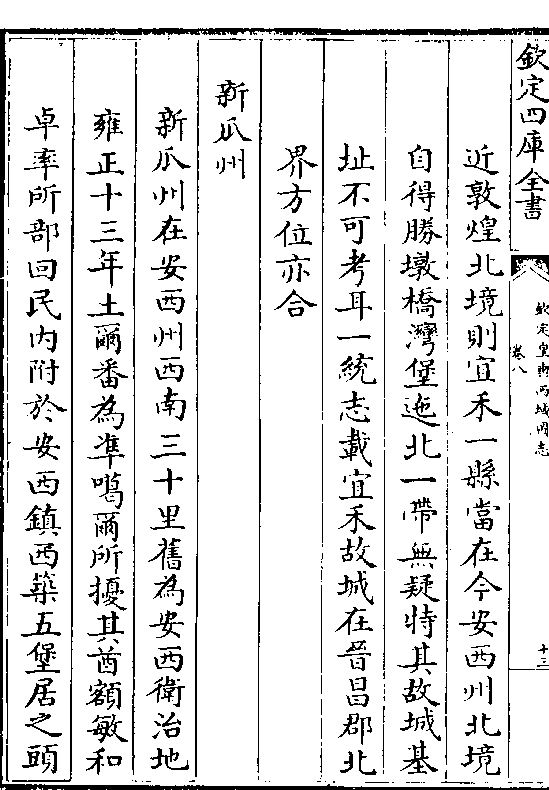 欽定四庫全書
欽定皇輿西域圖志
卷八
十三
近敦煌北境則宜禾一縣當在今安西州北境
自得勝墩橋灣堡迤北一帶無疑特其故城基
址不可考耳一統志載宜禾故城在晉昌郡北
界方位亦合
新瓜州
新瓜州在安西州西南三十里舊為安西衛治地
雍正十三年土爾番為準噶爾所擾其酋額敏和
卓率所部回民内附於安西鎮西築五堡居之頭